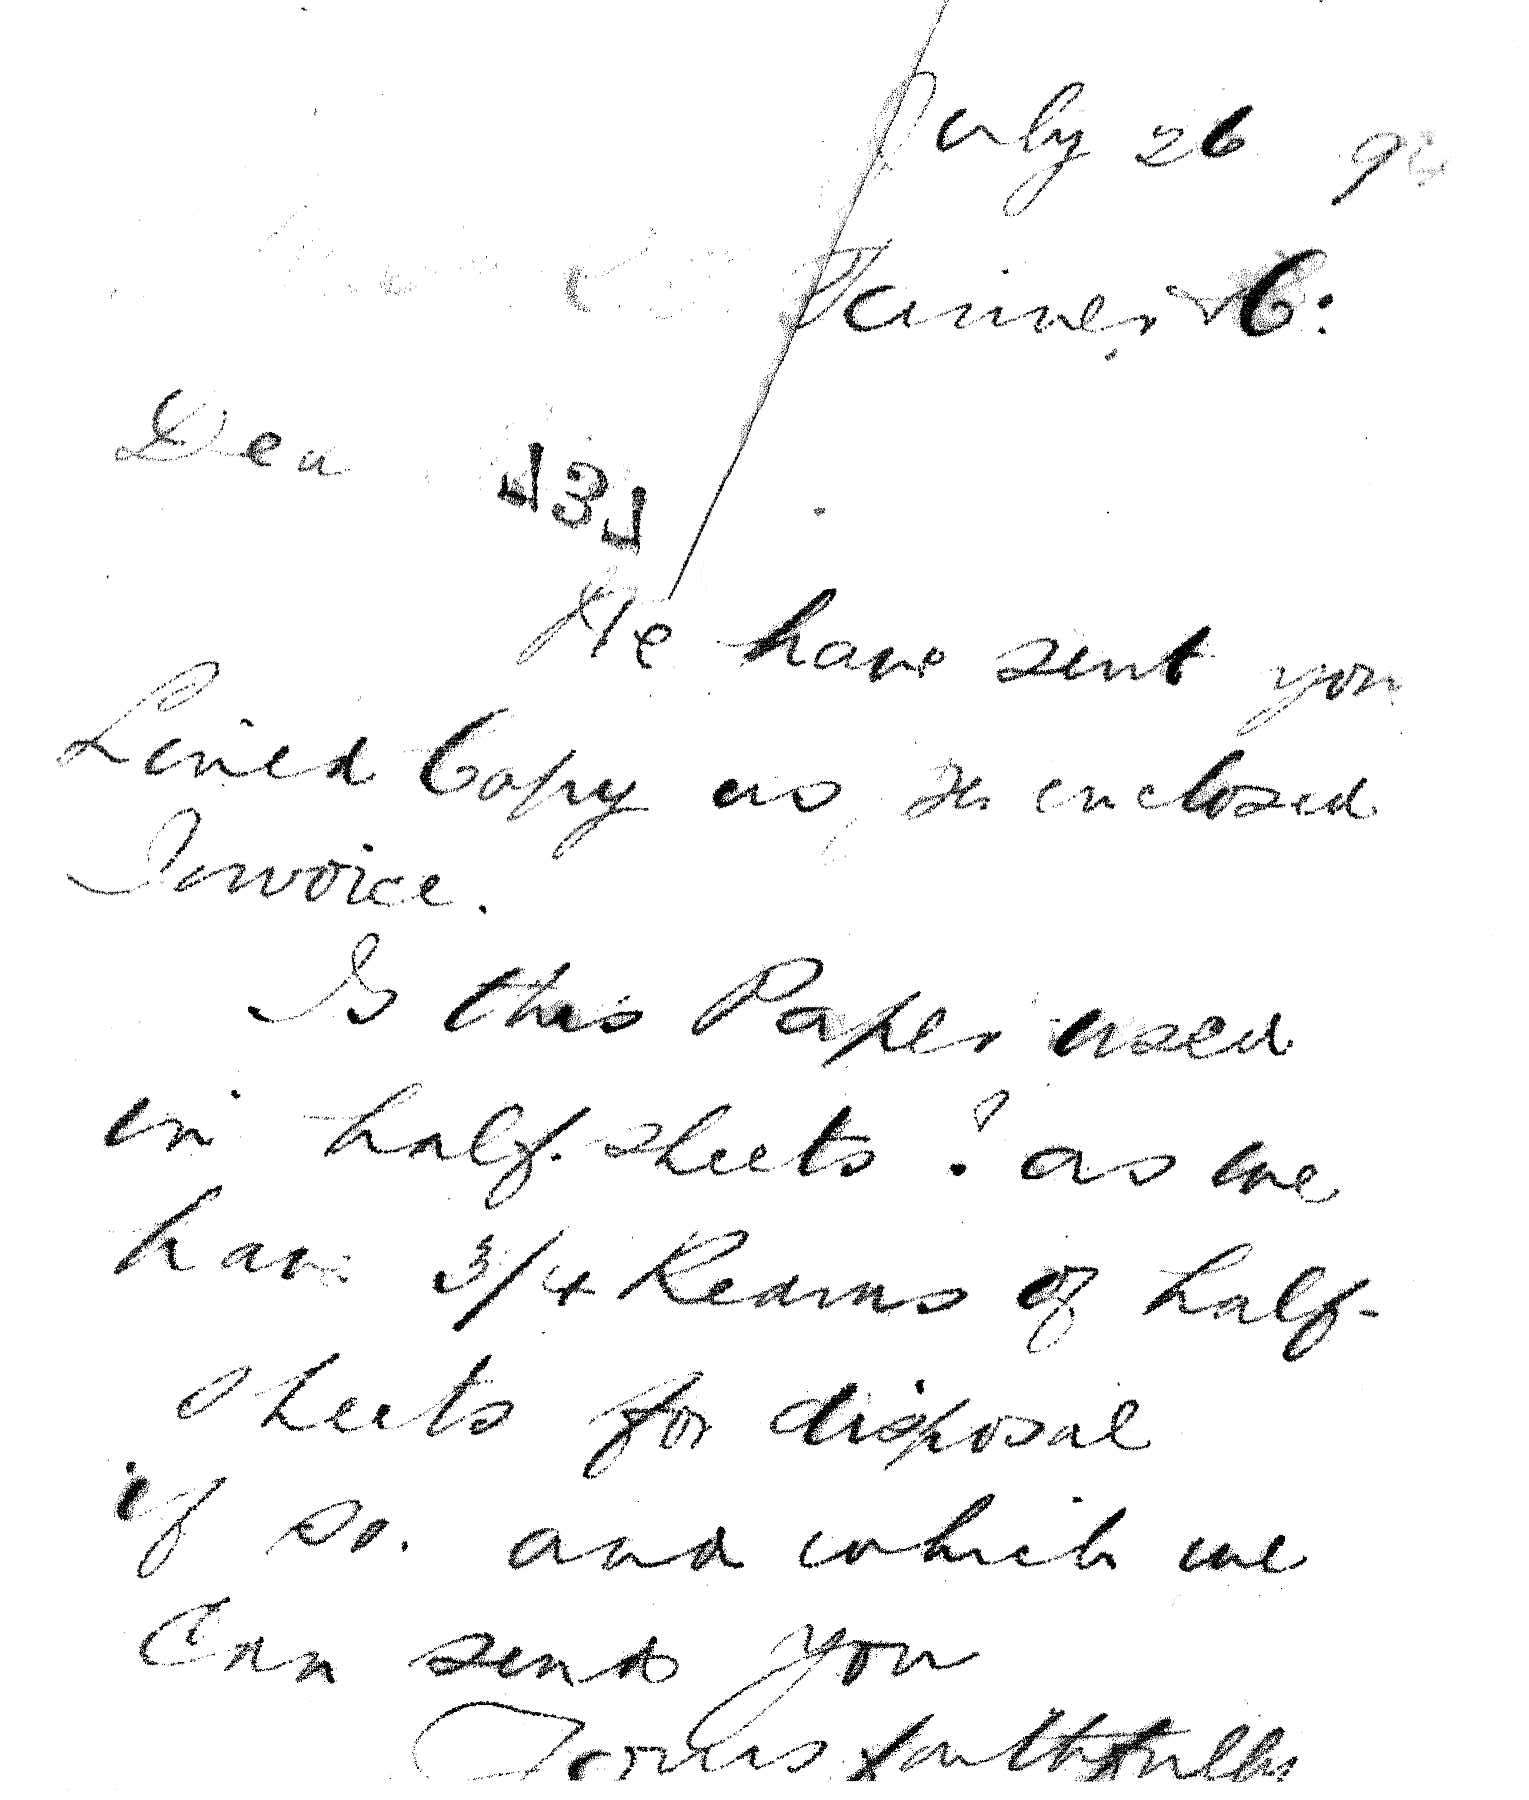 July 26 9
Tanner & Co:
Dear
We have sent you
Lined Copy as per enclosed
Invoice.
Is this Paper used
in half-sheets? as we
have 3/4 Reams of half-
sheets for disposal
if so. and which we
Can send you
Yours faithfully